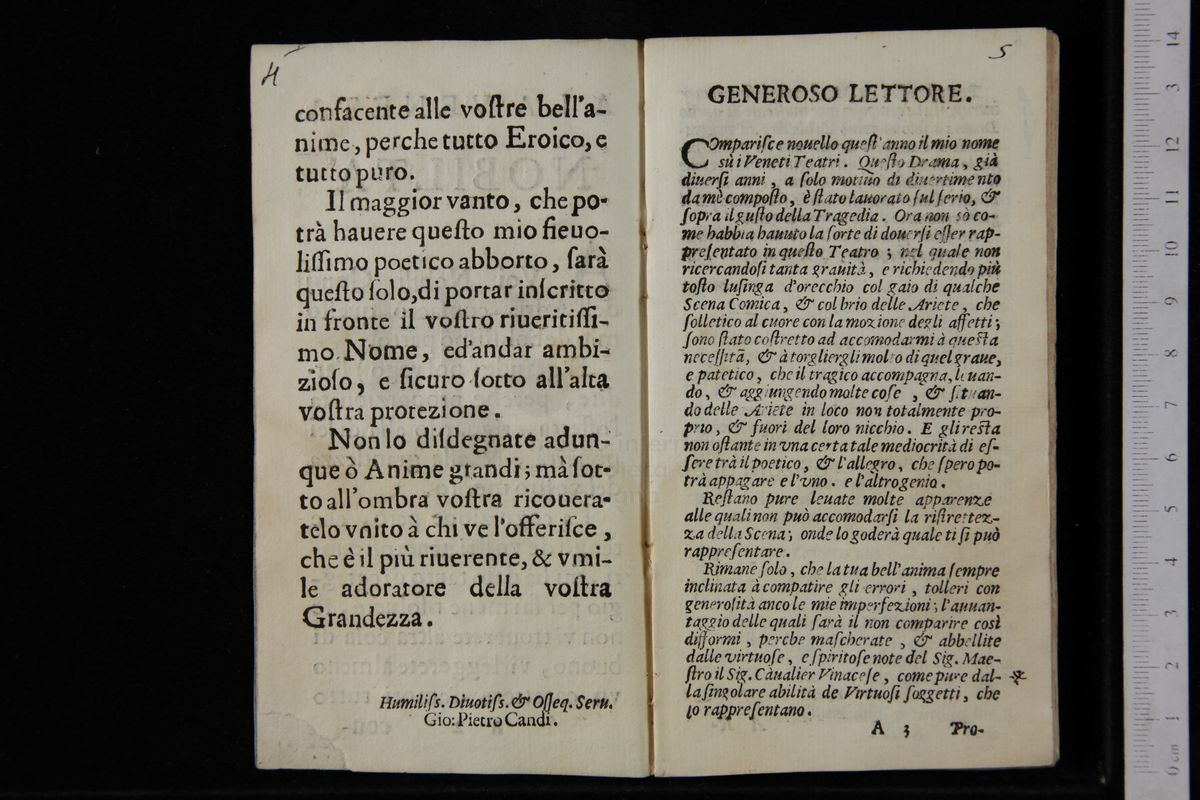 4
confacente alle voſtre bell'a-
nime, perche tutto Eroico, e
tutto puro.
Il maggior vanto, che po-
trà hauere queſto mio fieuo-
liſſimo poetico abborto, ſarà
queſto ſolo, di portar inſcritto
in fronte il voſtro riueritiſſi-
mo Nome, ed'andar ambi-
zioſo, e ſicuro ſotto all'alta
voſtra protezione.
Non lo diſdegnate adun-
que ò Anime grandi; mà ſot-
to all'ombra voſtra ricouera-
telo vnito à chi ve l'offeriſce,
che è il più riuerente, & vmi-
le adoratore della voſtra
Grandezza.
Humiliſs. Diuotiſs. & Oſſeq. Seru.
Gio: Pietro Candi.
5
GENEROSO LETTORE.
COmpariſce nouello queſt'anno il mio nome
sù i Veneti Teatri. Queſto Drama, già
diuerſi anni, a ſolo motiuo di diuertimento
da mè compoſto, è ſtato lauorato ſul ſerio, &
ſopra il guſto della Tragedia. Ora non sò co-
me habbia hauuto la ſorte di douerſi eſſer rap-
preſentato in queſto Teatro; nel quale non
ricercandoſi tanta grauità, e richiedendo più
toſto luſinga d'orecchio col gaio di qualche
Scena Comica, & col brio delle Ariete, che
ſolletico al cuore con la mozione degli affetti;
ſono ſtato coſtretto ad accomodarmi à queſta
neceſſità, & à torgliergli molto di quel graue,
e patetico, che il tragico accompagna, leuan-
do, & aggiungendo molte coſe, & ſituan-
do delle Ariete in loco non totalmente pro-
prio, & fuori del loro nicchio. E gli reſta
non oſtante in vna certa tale mediocrità di eſ-
ſere trà il poetico, & l'allegro, che ſpero po-
trà appagare e l'vno. e l'altro genio.
Reſtano pure leuate molte apparenze
alle quali non può accomodarſi la riſtrettez-
za della Scena; onde lo goderà quale ti ſi può
rappreſentare.
Rimane ſolo, che la tua bell'anima ſempre
inclinata à compatire gli errori, tolleri con
generoſità anco le mie imperfezioni; l'auuan-
taggio delle quali ſarà il non comparire così
difformi, perche maſcherate, & abbellite
dalle virtuoſe, e ſpiritoſe note del Sig. Mae-
ſtro il Sig. Caualier Vinaceſe, come pure dal-
la ſingolare abilità de Virtuoſi ſoggetti, che
lo rappreſentano.
A 3 Pro-
0 cm 1 2 3 4 5 6 7 8 9 10 11 12 13 14